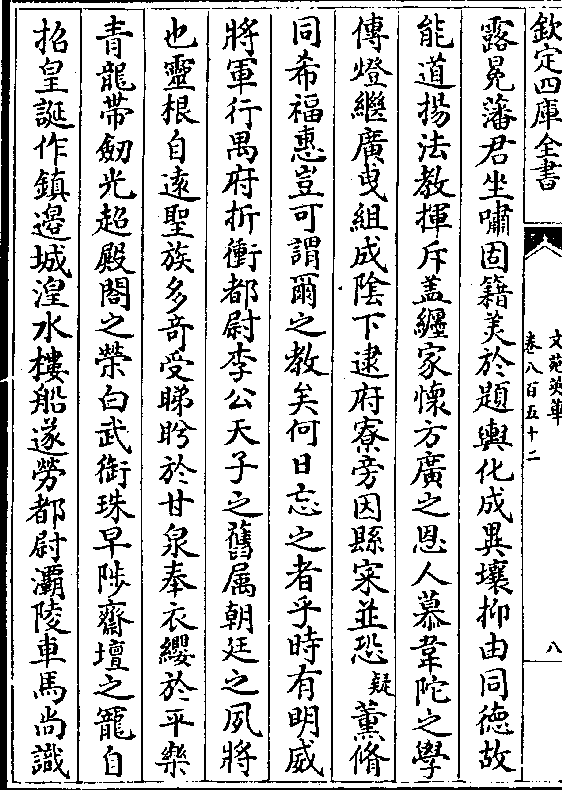 欽定四庫全書
文苑英華
卷八百五十二
八
露冕藩君坐嘯固籍美於題輿化成異壤抑由同德故
能道揚法教揮斥盖纒家懐方廣之恩人慕韋陀之學
傳燈繼廣曵組成隂下逮府寮旁因縣寀並恐疑薰脩
同希福惠豈可謂爾之教矣何日忘之者乎時有明威
將軍行禺府折衝都尉李公天子之舊属朝廷之夙將
也靈根自逺聖族多竒受睇盻於甘泉奉衣纓於平樂
青龍帶劒光超殿閣之榮白武銜珠早陟齋壇之寵自
招皇誕作鎮邉城湟水樓船遂勞都尉灞陵車馬尚識